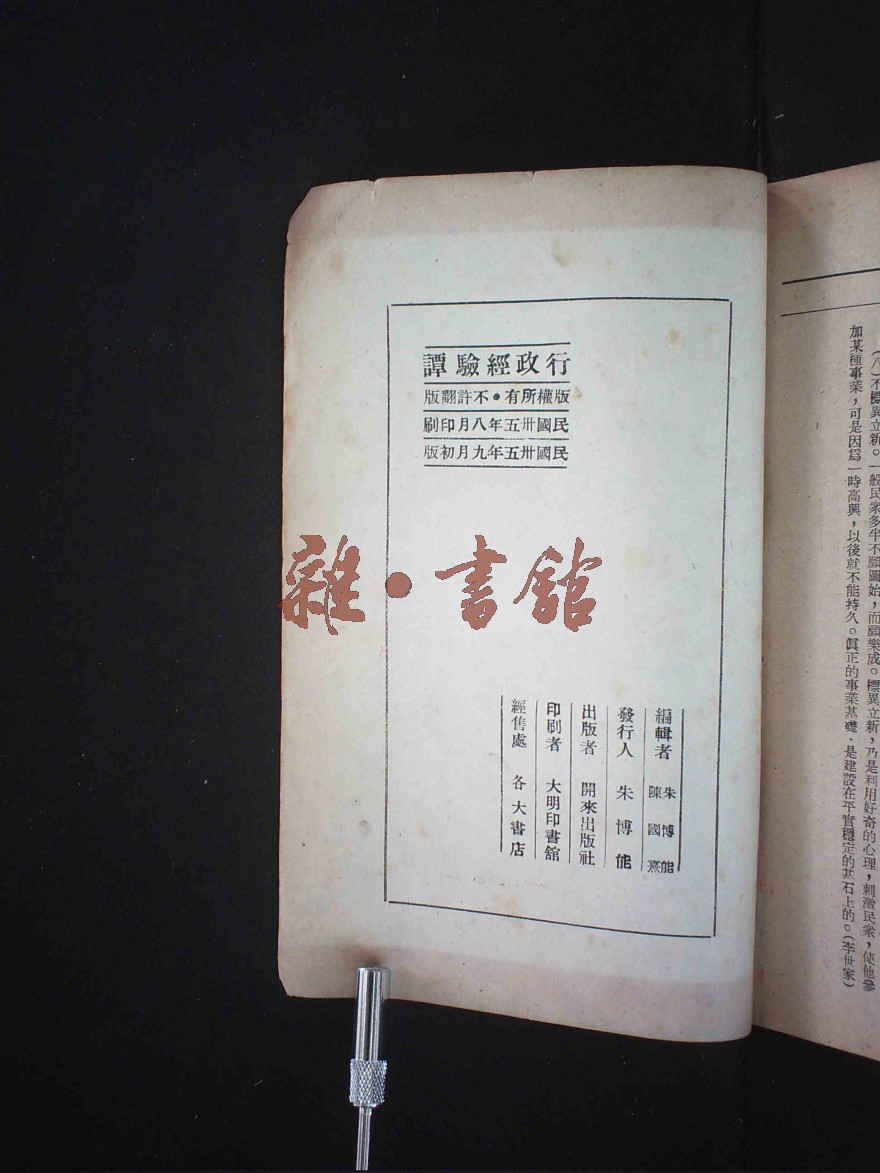 行政經驗譚
版權所有•不許翻版
民國卅五年八月印刷
民國卅五年九月初版
雜•書館
編輯者 朱博能 陳國熹
發行人 朱博能
出版者 開來出版社
印刷者 大明印書館
經售處 各大書店
(八)不標異立新。一般民衆多半不願圖始,而願樂成。標異立新,乃是利用好奇的心理,刺激民衆,使他參
加某種事業,可是因爲一時高興,以後就不能持久。眞正的事業基礎,是建設在平實穩定的基石上的。(李世家)